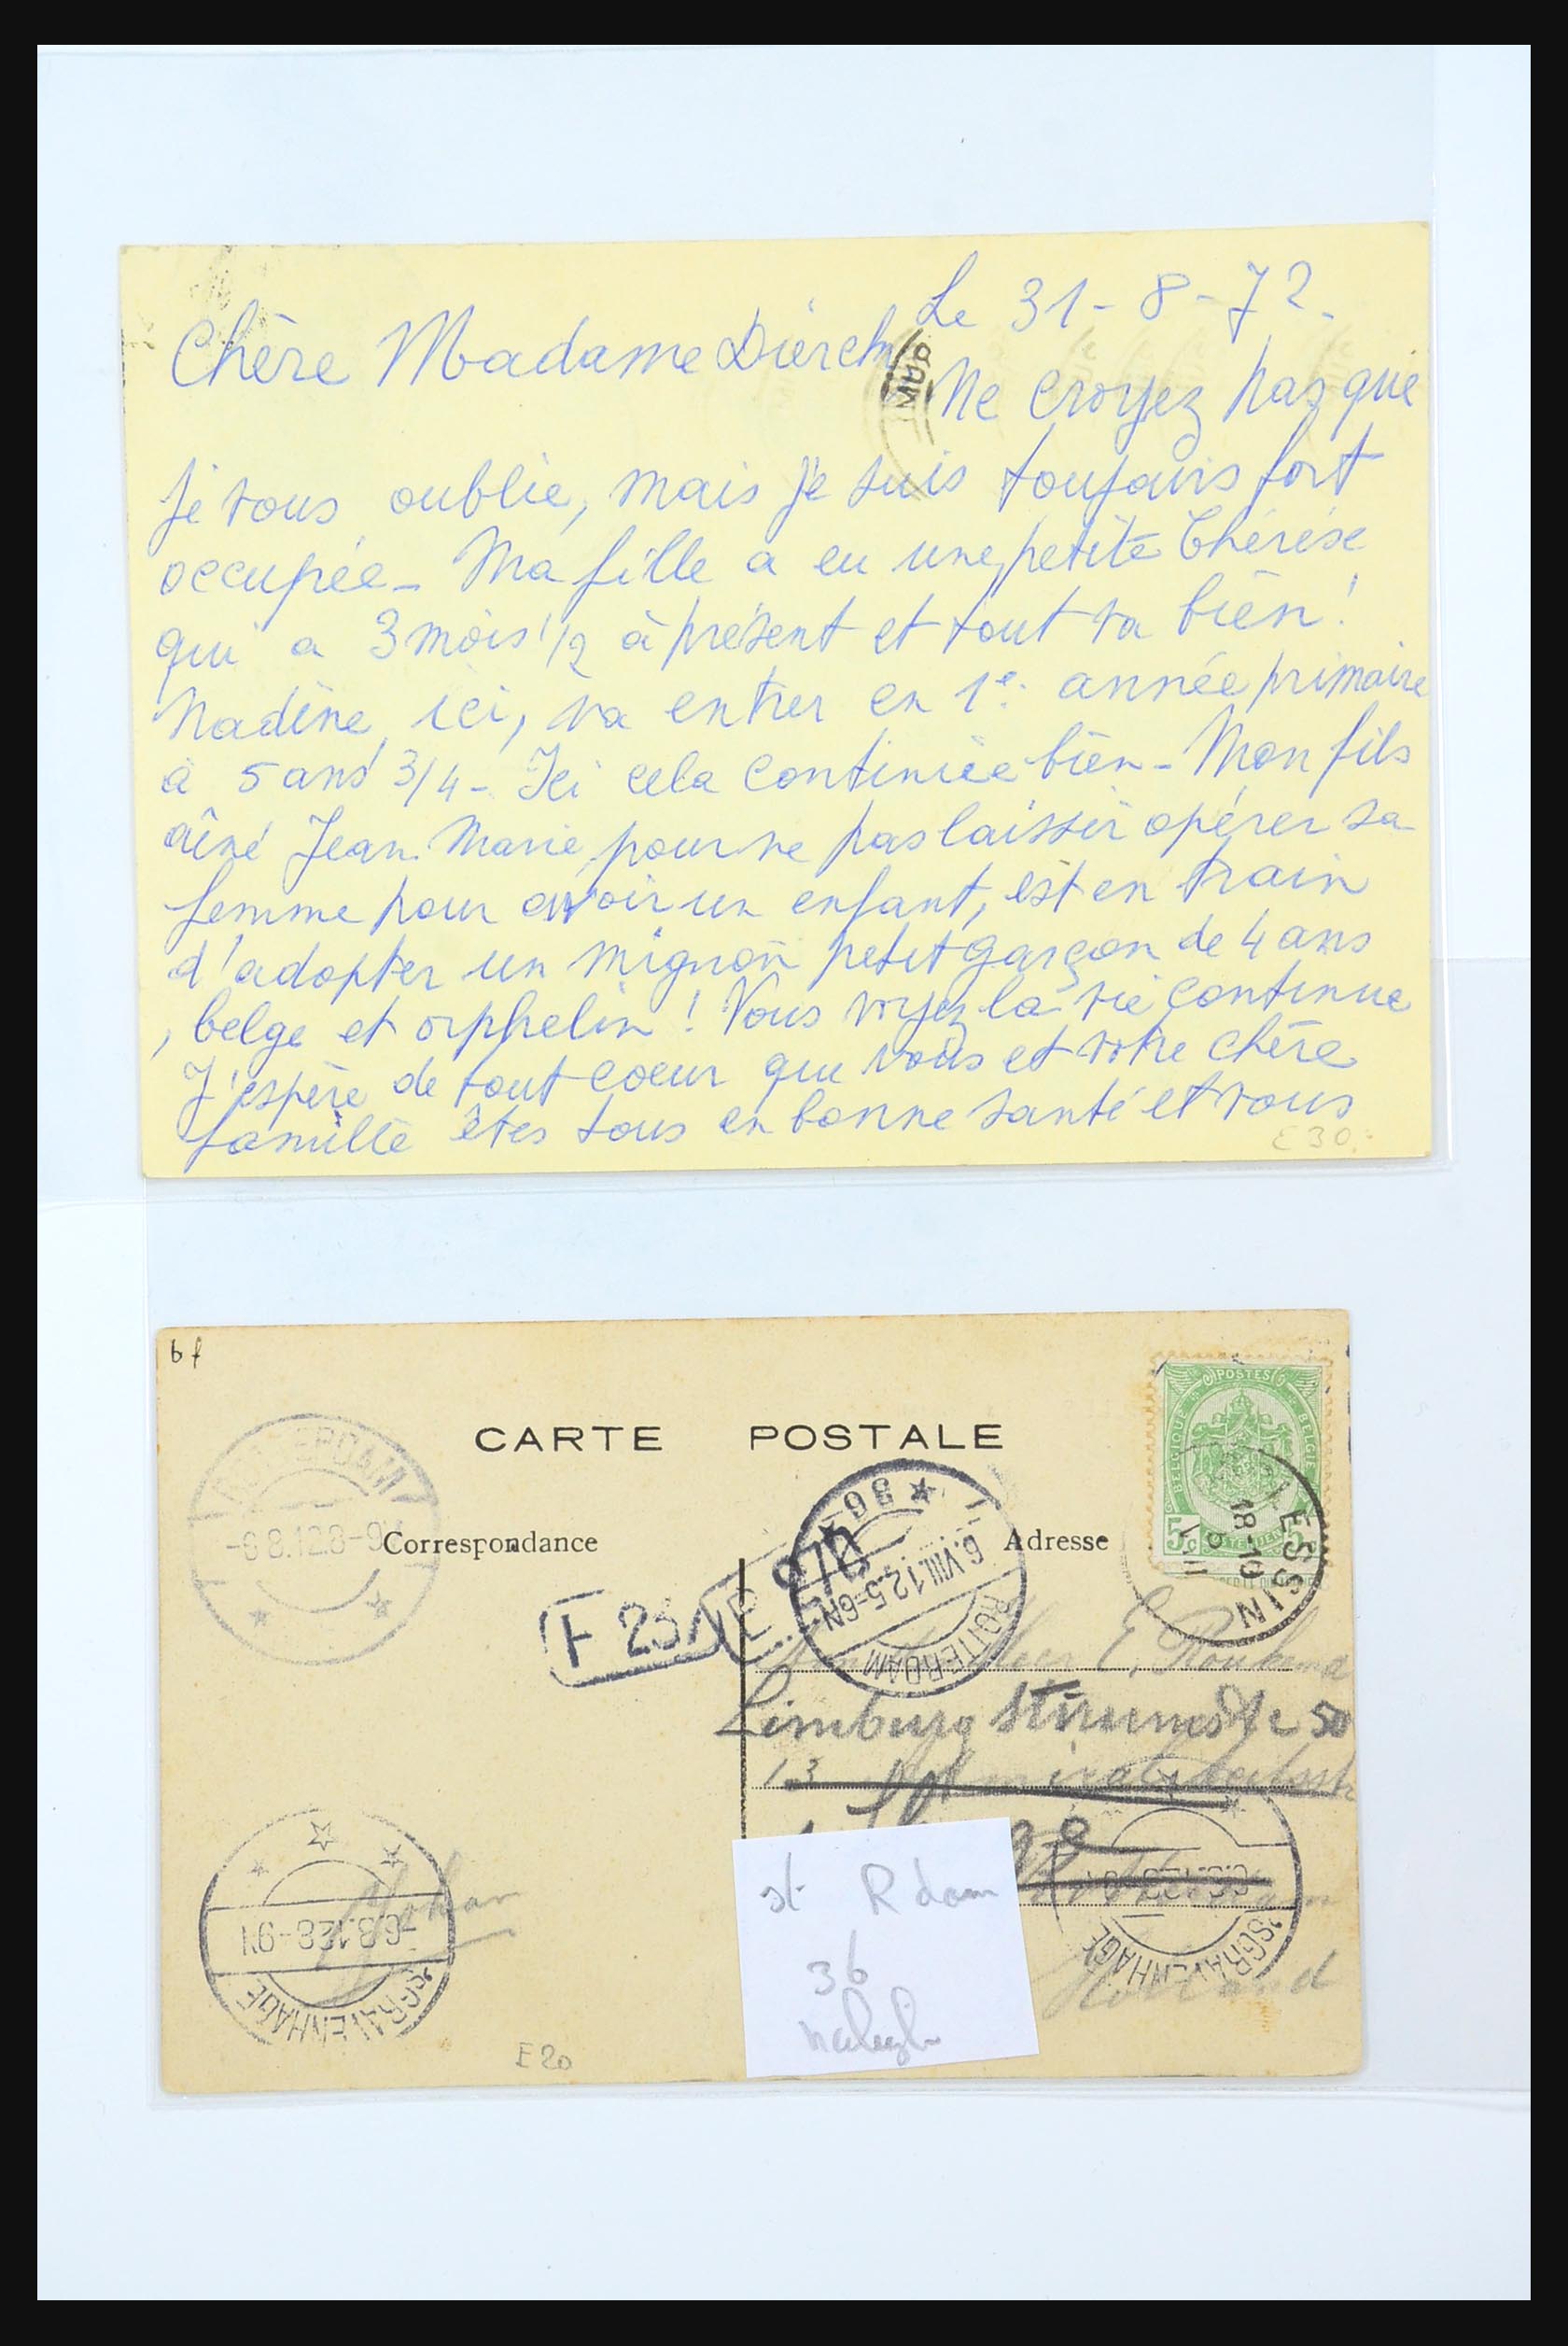 Le 31-8-72.
Chère Madame
Ne croyez pas que
je vous oublie, mais je suis toujours fort
occupée - Ma fille a eu une petite Thérèse
qui a 3 mois 1/2 à présent et tout va bien!
Nadine, ici, va entrer en 1e. année primaire
à 5 ans 3/4 - Ici cela continue bien - Mon fils
aîné Jean-Marie pour ne pas laisser opérer sa
femme pour avoir un enfant, est en train
d'adopter un mignon petit garçon de 4 ans
, belge et orphelin! Vous voyez la vie continue
J'espère de tout coeur que vous et votre chère
famille êtes tous en bonne santé et vous
E 30.-
bf
CARTE POSTALE
POSTES
BELGIQUE BELGIE
5c
LESSIN
18-19
ROTTERDAM
-6 8.12 8-9V
Correspondance
Adresse
★ 36 ★
6.VIII.12.5-6N
ROTTERDAM
F 25
970
E.
Limburg Stirumstr 50
13
-6.8.12 8-9V
'SGRAVENHAGE
Johan
'SGRAVENHAGE
Holland
st R dam
36
E 20